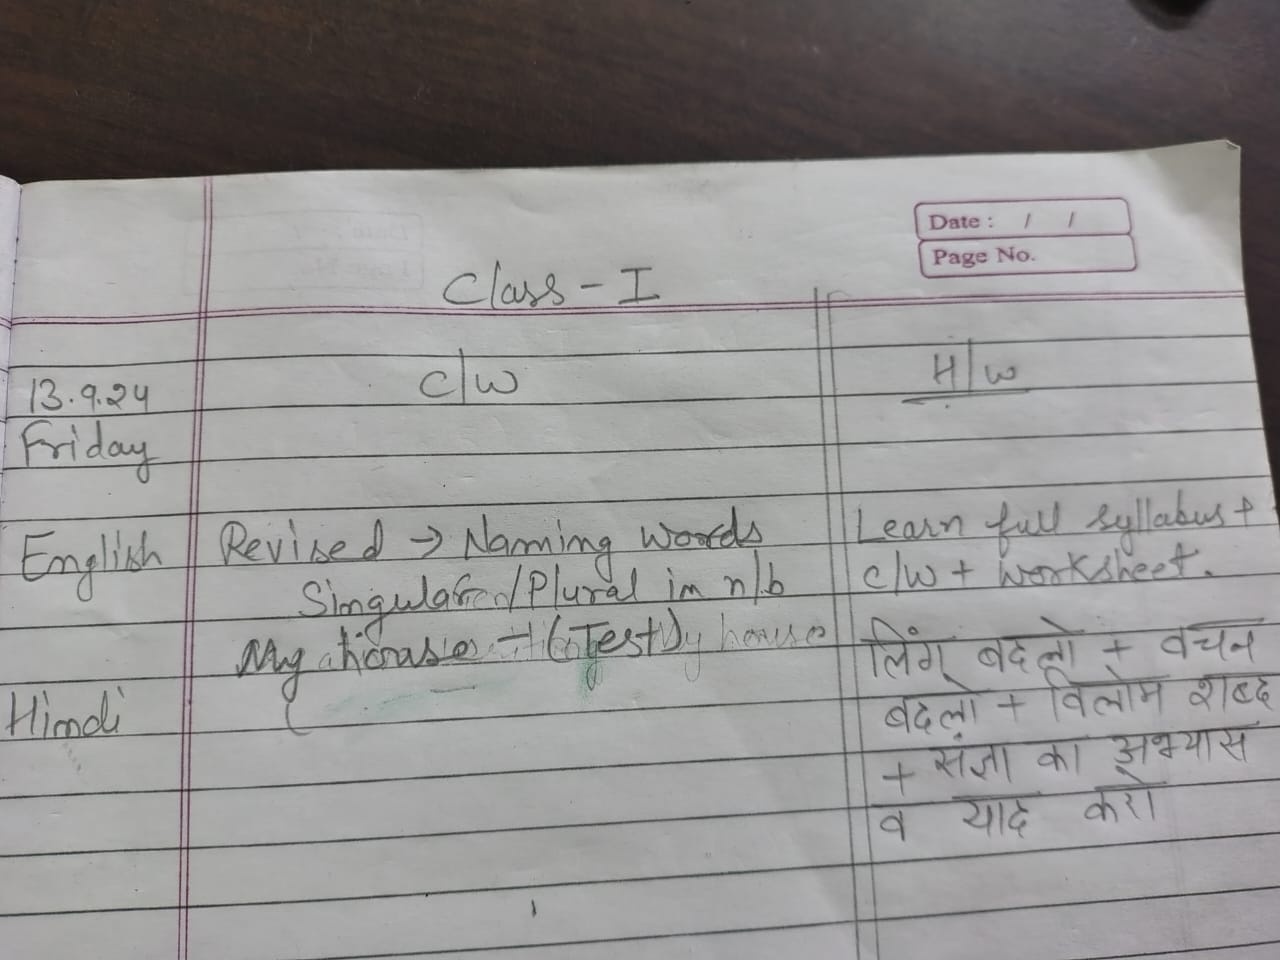 Date : / /
Page No.
Class - I
13.9.24 C/W H/W
Friday
English Revised → Naming words Learn full syllabus +
Singular/Plural in n/b c/w + worksheet.
My house - (Test) y house लिंग बदलो + वचन
Hindi ( बदलो + विलोम शब्द
+ संज्ञा का अभ्यास
व याद करो